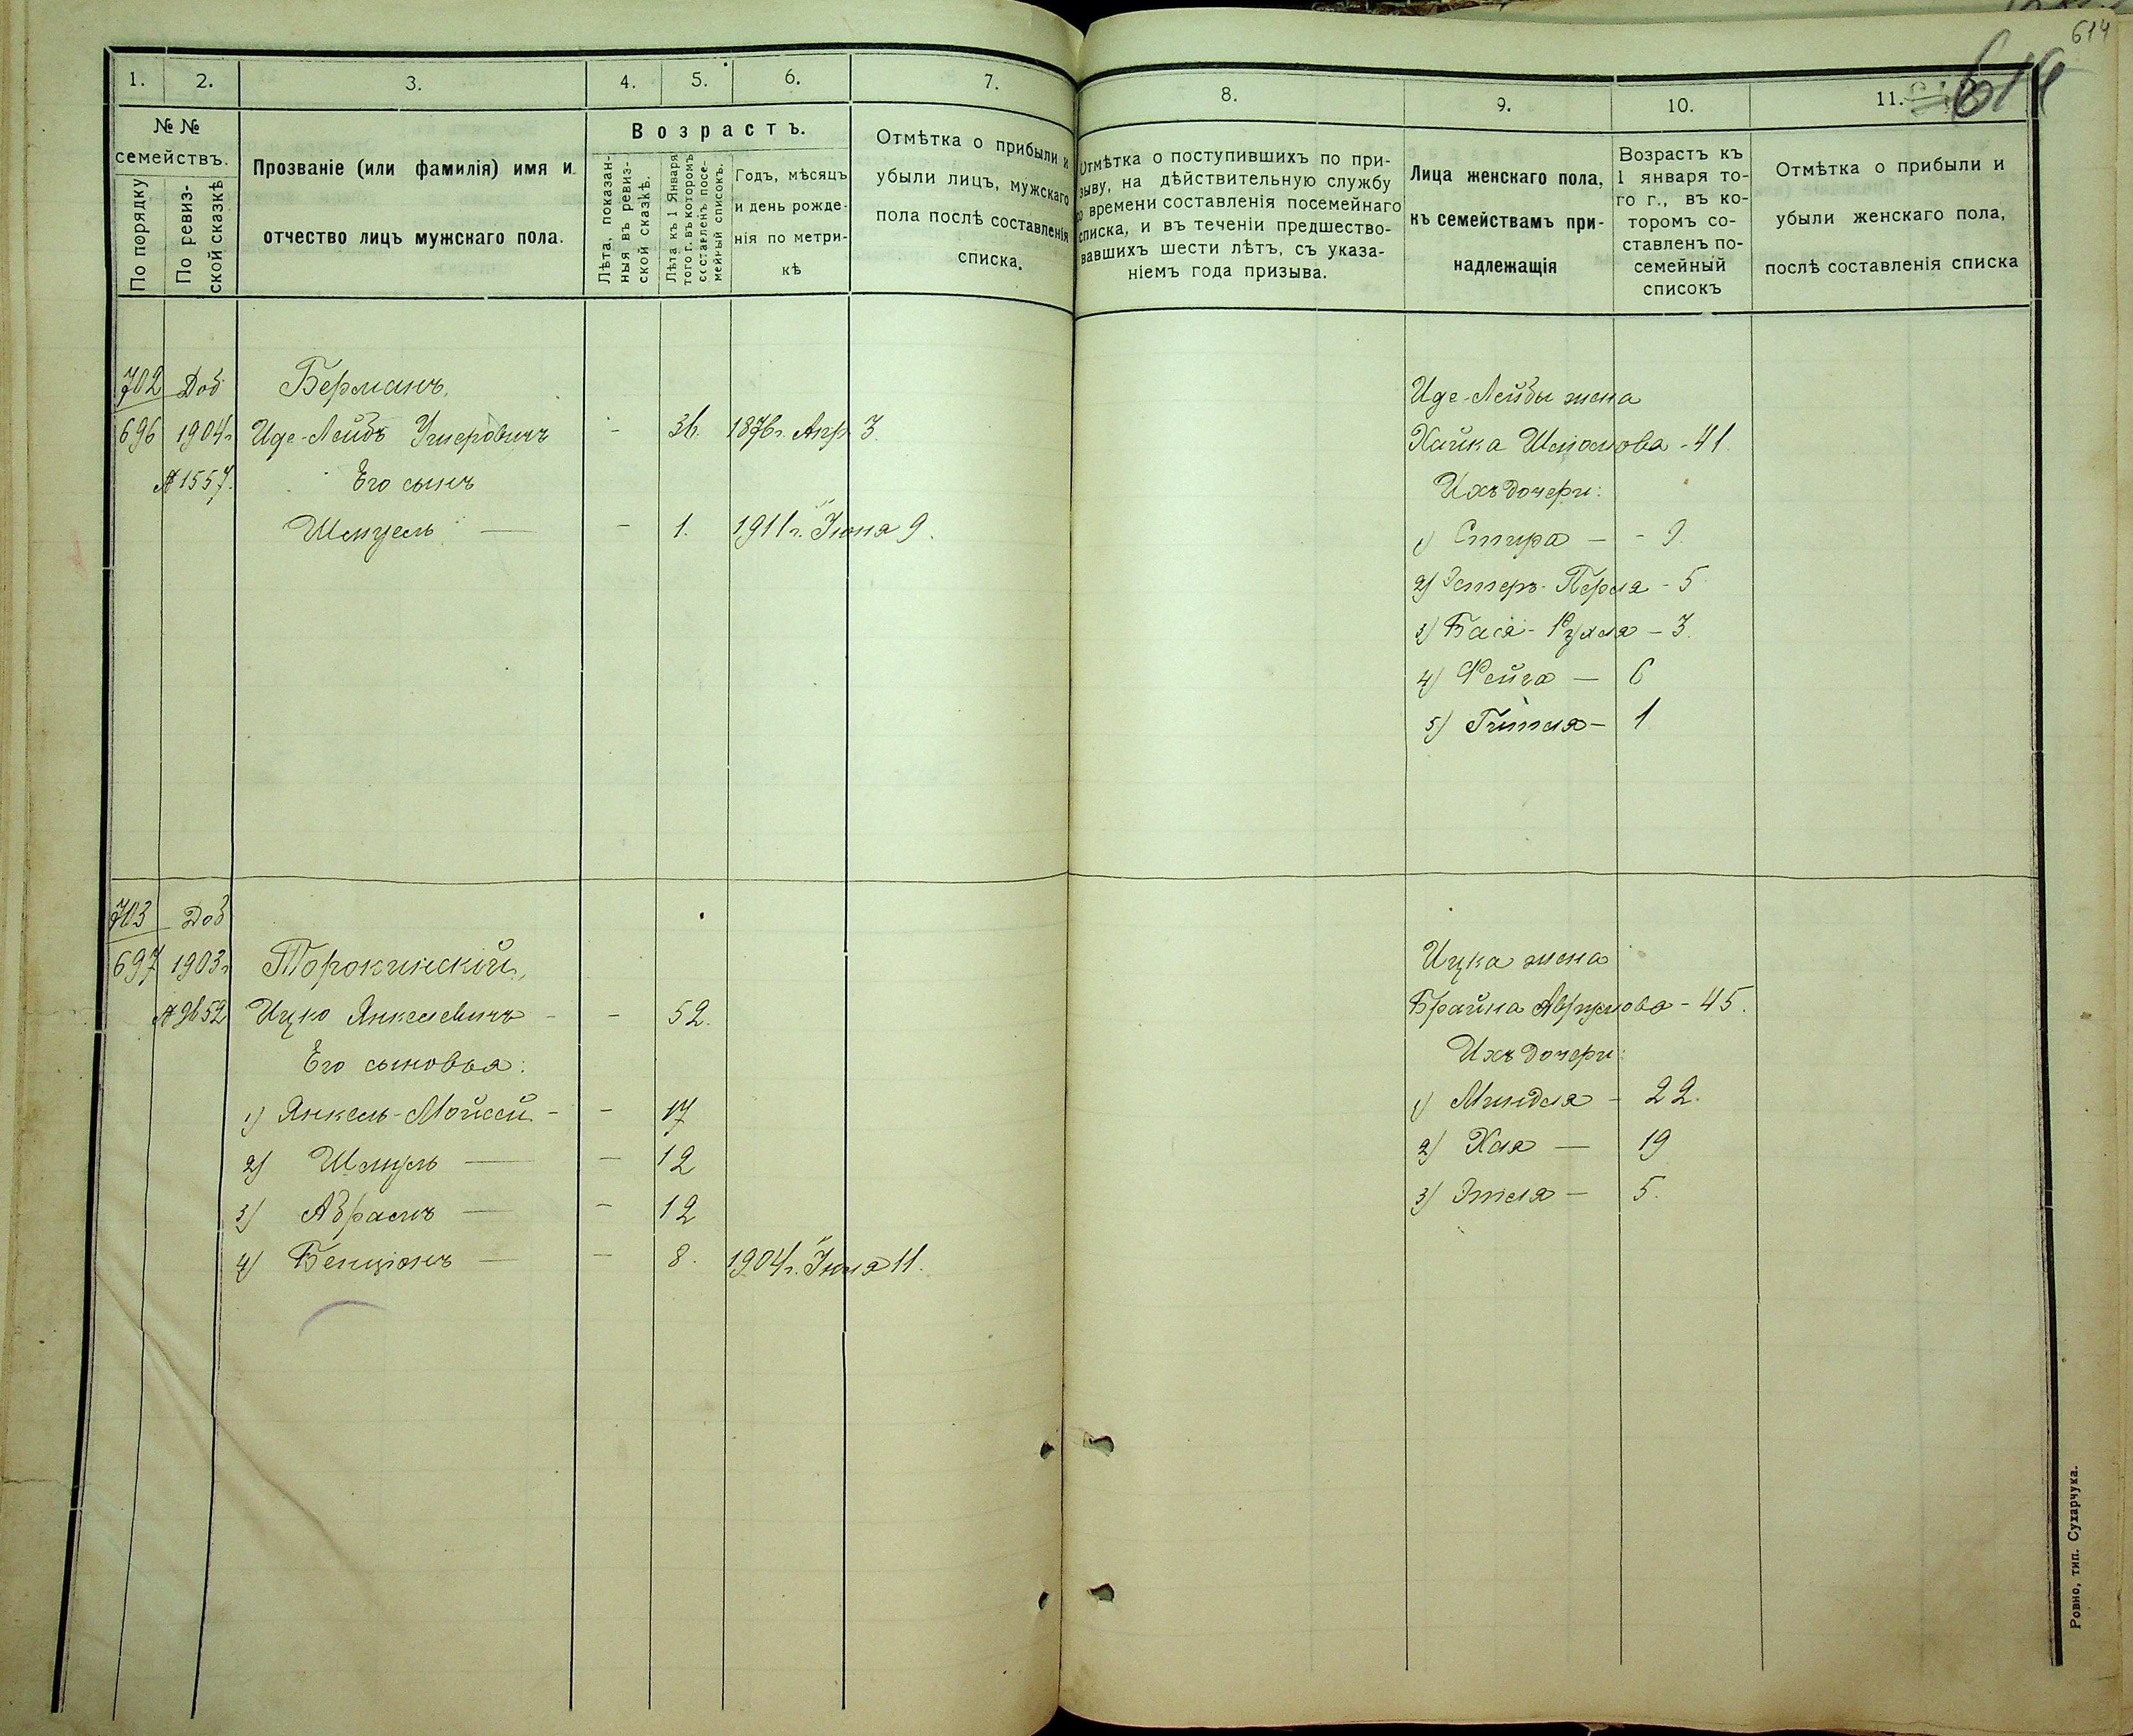 614
614
1. 2. 3. 4. 5. 6. 7.
№ №
семействъ.
По порядку
По ревиз-
ской сказкѣ
Прозваніе (или фамилія) имя и
отчество лицъ мужскаго пола.
Возрастъ.
Лѣта, показан-
ныя въ ревиз-
ской сказкѣ.
Лѣта къ 1 Января
того г. въ которомъ
составленъ посе-
мейный списокъ.
Годъ, мѣсяцъ
и день рожде-
нія по метри-
кѣ
Отмѣтка о прибыли и
убыли лицъ, мужскаго
пола послѣ составленія
списка.
702 Доб Берманъ,
696 1904г Иде-Лейбъ Ушеровичъ - 36. 1876г. Апр 3.
№1557. Его сынъ
Шмуель — - 1. 1911г. Іюня 9.
703 Доб
697 1903г Торокинскій,
Ицко Янкелевичъ - - 52.
Его сыновья:
1) Янкель-Мойсей - - 17
2) Шмуль — — 12
3) Абрамъ — — 12
4) Бенціонъ — — 8. 1904г. 11.
8. 9. 10. 11.
Отмѣтка о поступившихъ по при-
зыву, на дѣйствительную службу
по времени составленія посемейнаго
списка, и въ теченіи предшество-
вавшихъ шести лѣтъ, съ указа-
ніемъ года призыва.
Лица женскаго пола,
къ семействамъ при-
надлежащія
Возрастъ къ
1 января то-
го г., въ ко-
торомъ со-
ставленъ по-
семейный
списокъ
Отмѣтка о прибыли и
убыли женскаго пола,
послѣ составленія списка
Иде-Лейбы жена
Хайка Шліомова - 41
Ихъ дочери:
1) Стира — - 9.
2) Эстеръ-Перля - 5
3) Бася-Рухля - 3.
4) Фейга — 6
5) Гитля — 1
Ицка жена
Брайна Аврумова - 45.
Ихъ дочери:
1) Миндля - 22.
2) Хая — 19
3) Этля — 5.
Ровно, тип. Сухарчука.